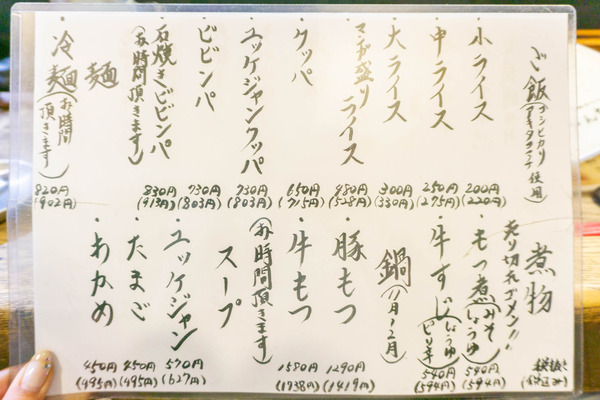 ご飯(コシヒカリ アキタコマチ 使用)
・小ライス 200円 (220円)
・中ライス 250円 (275円)
・大ライス 300円 (330円)
・マンガ盛りライス 480円 (528円)
・クッパ 650円 (715円)
・ユッケジャンクッパ 730円 (803円)
・ビビンパ 730円 (803円)
・石焼きビビンパ (お時間頂きます) 830円 (913円)
麺
・冷麺 (お時間頂きます) 820円 (902円)
煮物 売り切れゴメン!!
税抜き (税込み)
・もつ煮(みそ しょうゆ) 540円 (594円)
・牛すじ(しょうゆ ピリ辛) 540円 (594円)
鍋(11月~2月)
・豚もつ 1290円 (1419円)
・牛もつ 1580円 (1738円)
(お時間頂きます)
スープ
・ユッケジャン 570円 (627円)
・たまご 450円 (495円)
・わかめ 450円 (495円)